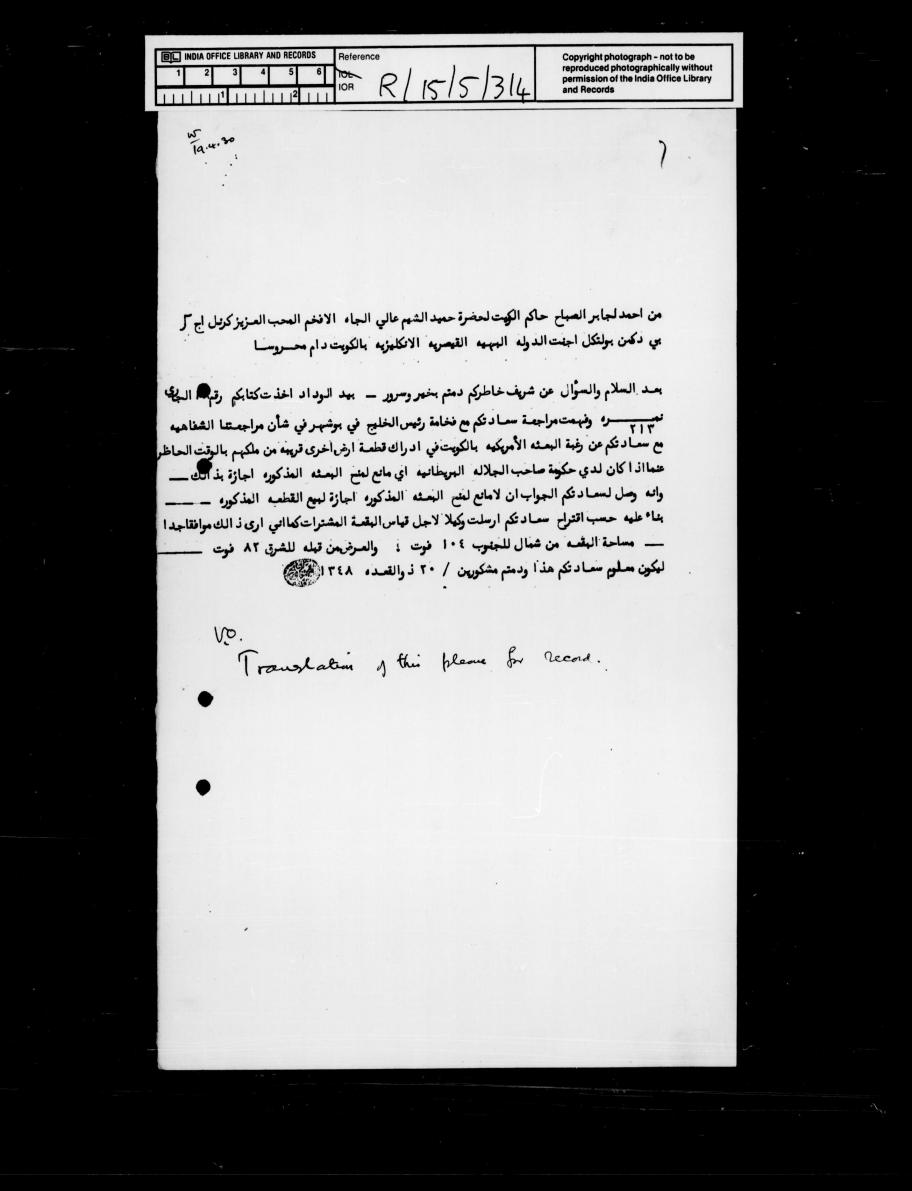 BL INDIA OFFICE LIBRARY AND RECORDS
1 2 3 4 5 6
1 2
Reference
IOL
IOR
R/15/5/314
Copyright photograph - not to be
reproduced photographically without
permission of the India Office Library
and Records
19.4.30
7
من احمد لجابر الصباح حاكم الكويت لحضرة حميد الشيم عالي الجاه الافخم المحب العزيز كرنل اج ر
بي دكسن بولتكل اجنت الدوله البهيه القيصريه الانكليزيه بالكويت دام محروسا
بعد السلام والسؤال عن شريف خاطركم دمتم بخير وسرور ـ بيد الوداد اخذت كتابكم رقم الجاري
نمره ٢١٣ وفهمت مراجعة سعادتكم مع فخامة رئيس الخليج في بوشهر في شأن مراجعتنا الشفاهيه
مع سعادتكم عن رغبة البعثه الأمريكيه بالكويت في ادراك قطعة ارض اخرى قريبه من ملكهم بالوقت الحاظر
عما اذا كان لدي حكومة صاحب الجلاله البريطانيه اي مانع لمنح البعثه المذكوره اجازة بذالك ـ
وانه وصل لسعادتكم الجواب ان لامانع لمنح البعثه المذكوره اجازة لبيع القطعه المذكوره ـ ـ
بناء عليه حسب اقتراح سعادتكم ارسلت وكيلا لاجل قياس البقعة المشترات كما اني ارى ذالك موافقا جدا
ـ مساحة البقعه من شمال للجنوب ١٠٤ فوت ؛ والعرض من قبله للشرق ٨٢ فوت ـ
ليكون معلوم سعادتكم هذا ودمتم مشكورين / ٢٠ ذوالقعده ١٣٤٨
VO.
Translation of this please for record.